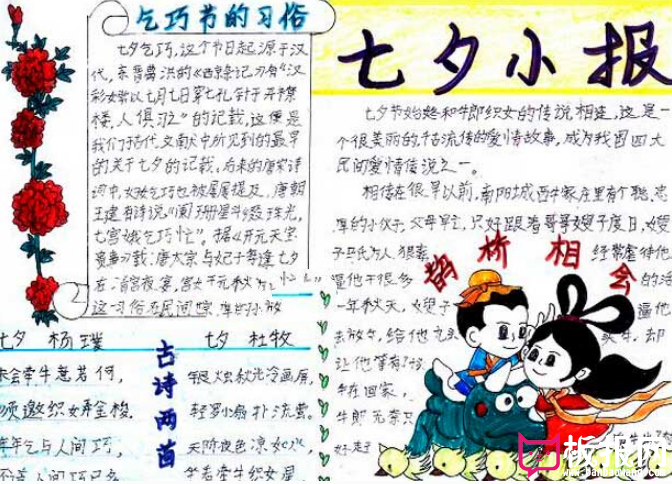 乞巧节的习俗
七夕乞巧,这个节日起源于汉
代,东晋葛洪的《西京杂记》有“汉
彩女常以七月七日穿七孔针于开襟
楼,人俱习之”的记载,这便是
我们于古代文献中所见到的最早
的关于七夕的记载。后来的唐宋诗
词中,妇女乞巧也被屡屡提及,唐朝
王建有诗说“阑珊星斗缀珠光,
七宫娥乞巧忙”。据《开元天宝
遗事》载:唐太宗与妃子每逢七夕
在清宫夜宴,宫女
这一习俗在民间
七夕小报
七夕节始终和牛郎织女的传说相连,这是
个很美丽的,千古流传的爱情故事,成为我国四大
民间爱情传说之一。
相传在很早以前,南阳城西牛家庄里有个聪
厚的小伙子,父母早亡,只好跟着哥哥嫂子度日,嫂
子马氏为人狠毒
经常虐待他
逼他干很多
的
一年秋天,嫂子
逼他
去放牛,给他九头
却
让他等有
牛在回家,
牛郎无奈只
鹊桥相会
七夕 杨璞
未会牵牛意若何,
须邀织女弄金梭。
年年乞与人间巧,
人间巧
古诗两首
七夕 杜牧
烛秋光冷画屏,
轻罗小扇扑流萤。
天阶夜色凉如水,
牵牛织女星
板报网